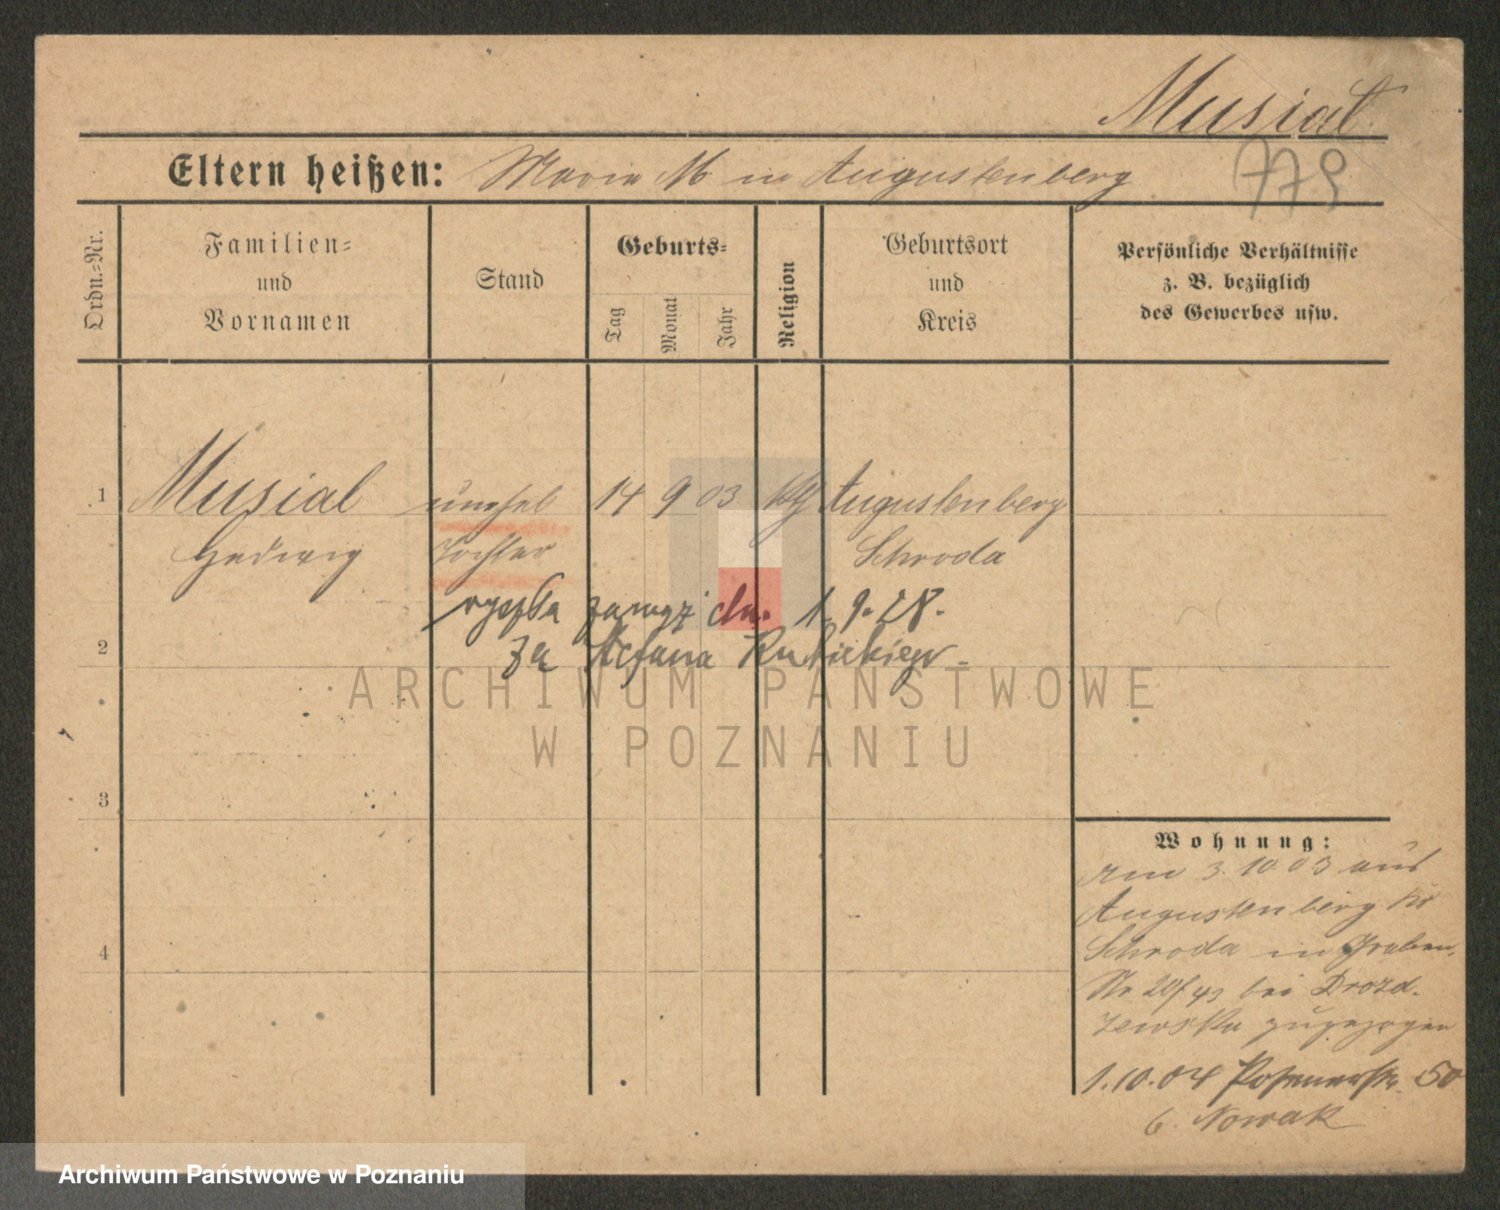 Musial
Eltern heißen: Maria M in Augustenberg
779
Ordn.-Nr.
Familien-
und
Vornamen
Stand
Geburts-
Tag
Monat
Jahr
Religion
Geburtsort
und
Kreis
Persönliche Verhältnisse
z. B. bezüglich
des Gewerbes usw.
1 Musial unehel 14 9 03 Augustenberg
Hedwig Tochter Schroda
wyszła zamąż dn. 1. 9. 28.
2 za Stefana
ARCHIWUM PAŃSTWOWE
W POZNANIU
3
4
Wohnung:
Am 3. 10 03 aus
Augustenberg Kr
Schroda in Graben
Nr 20/43 bei Drozd-
zewska zugezogen
1.10.04 Posenerstr. 50
b. Nowak
Archiwum Państwowe w Poznaniu